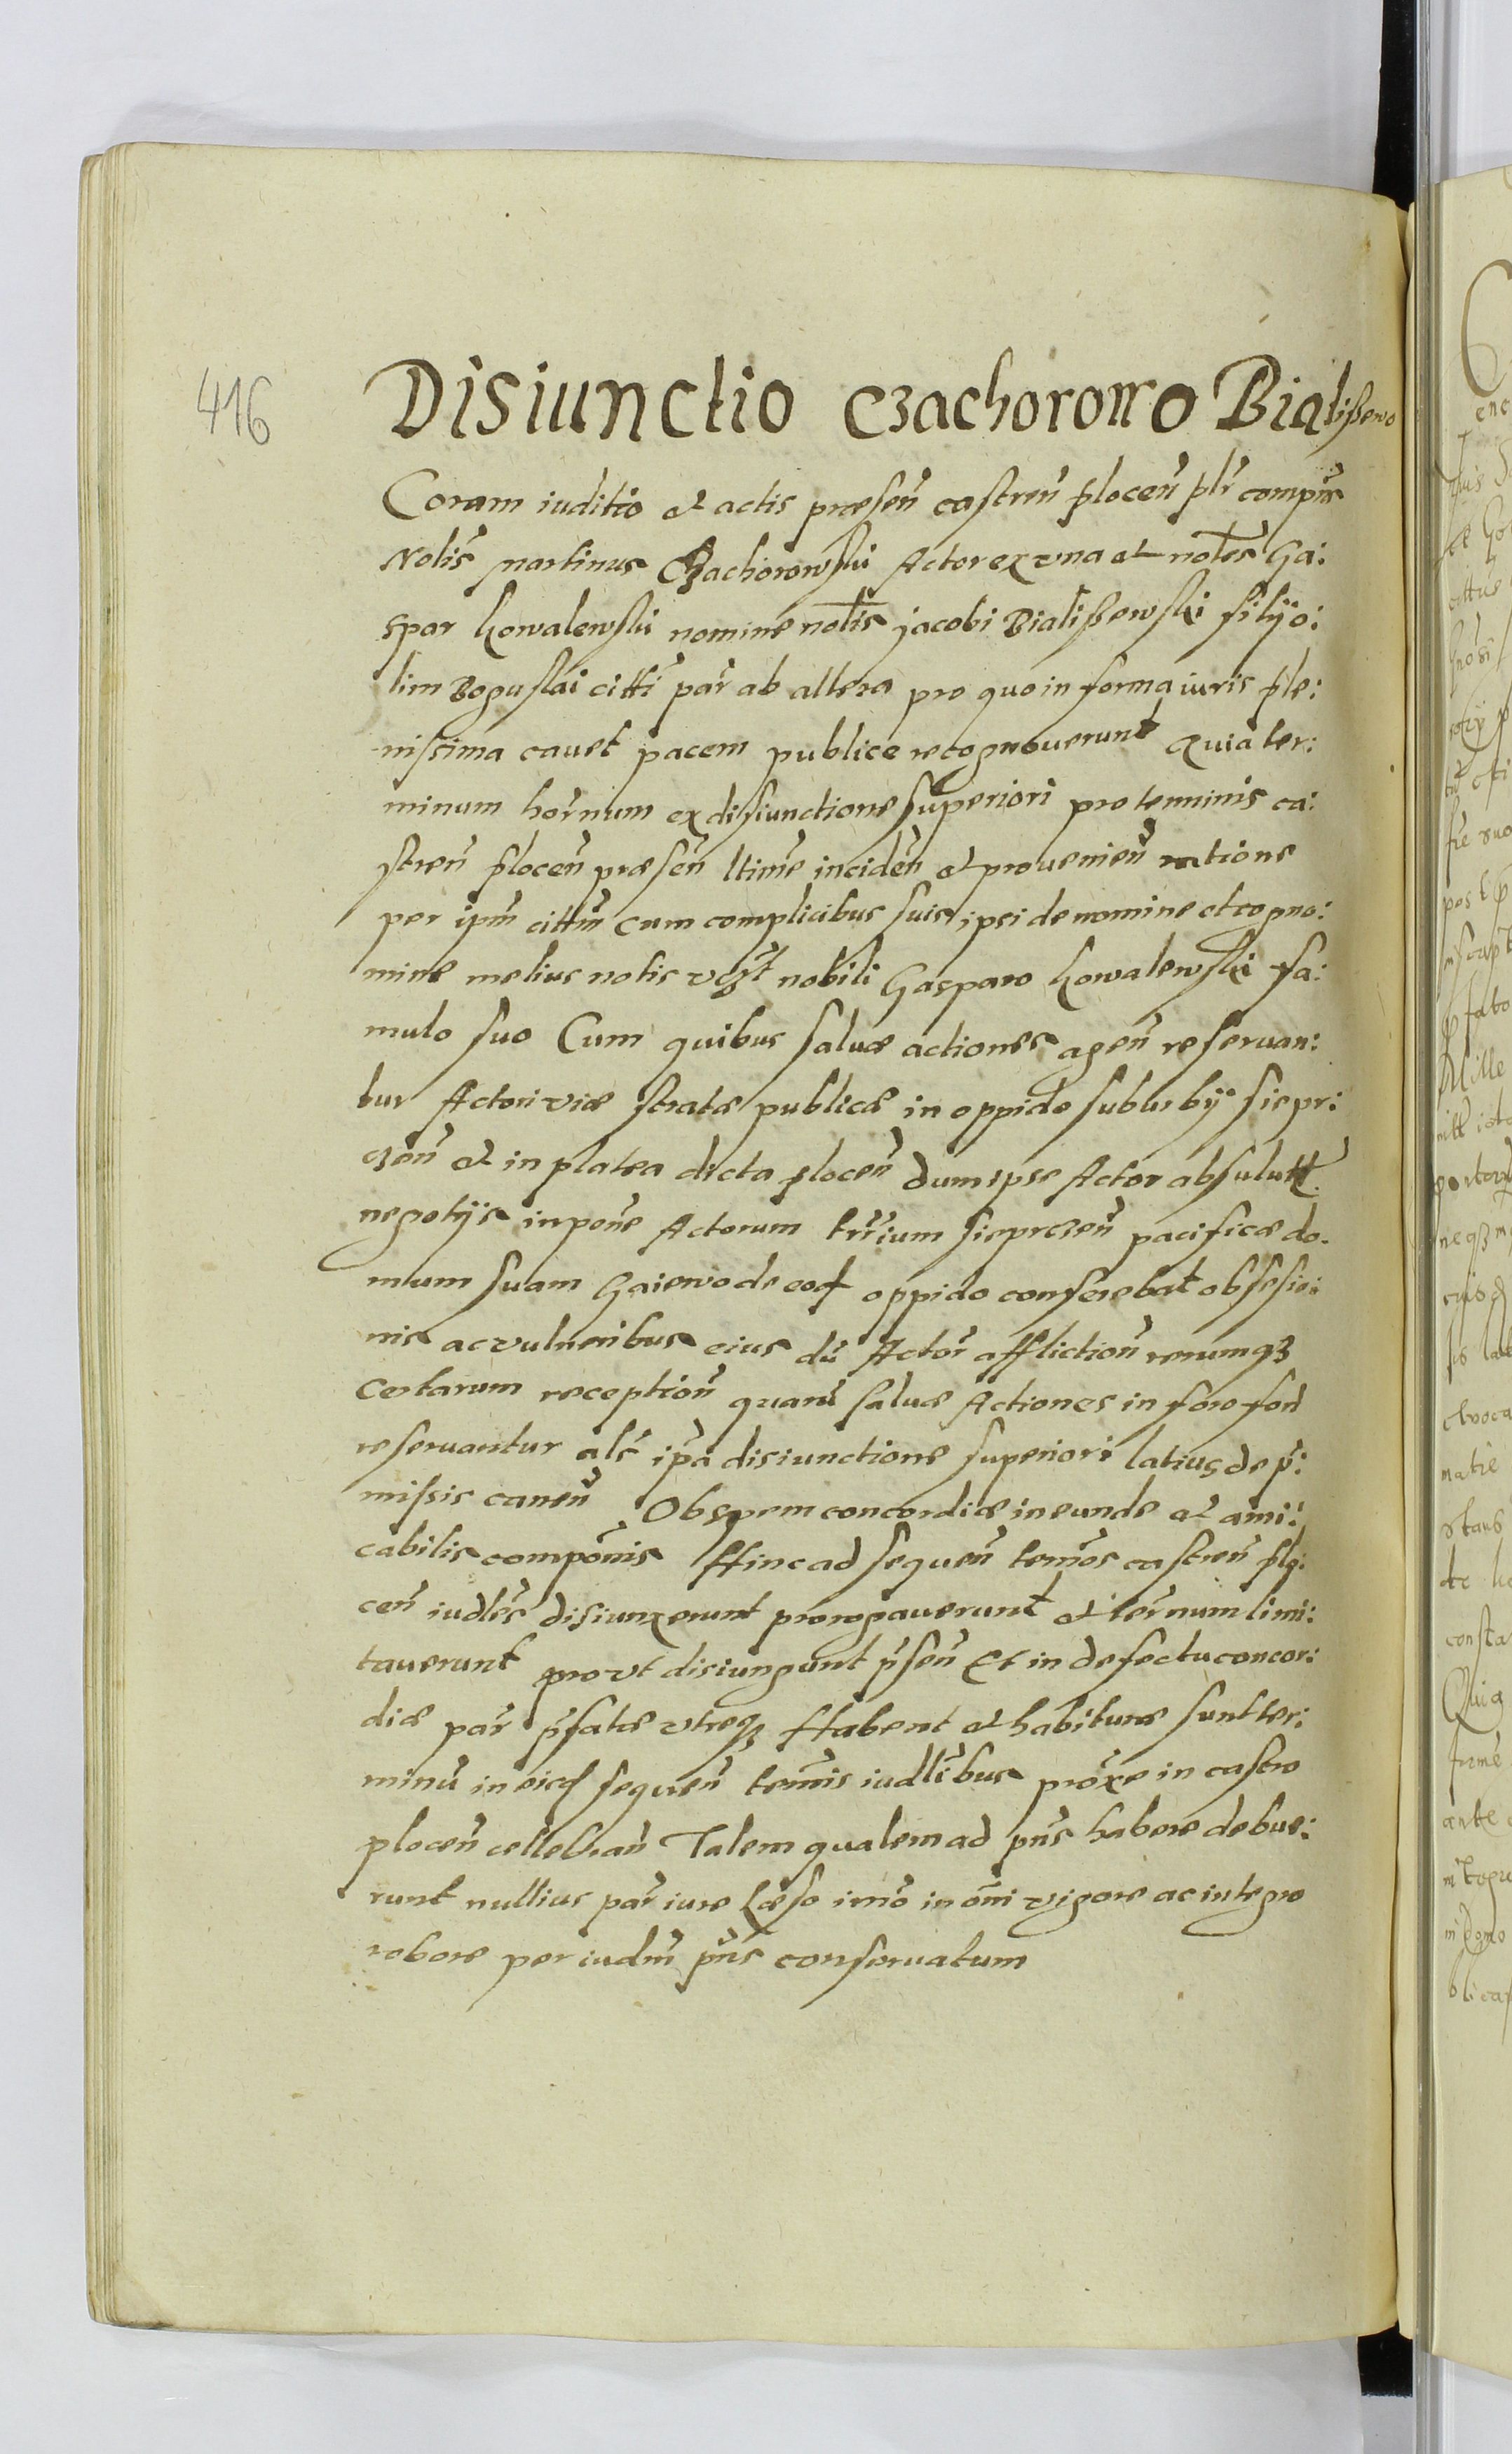 416
Disiunctio Czachorowo Bialißewo
Coram iuditio et actis præsen̄ castren̄ plocen̄ plr̄ compn̄s
Nolis̄ martinus Czachorowski Actor ex vna et notl̄es Ga:
spar kowalewski nomine notl̄is jacobi Bialißewski filÿ o:
lim Boguslai citti par̄ ab altera pro quo in forma iuris ple:
nissima cavet pacem publice recognoverunt Quia ter:
minum hor̄num ex disiunctione superiori pro terminis ca:
stren̄ plocen̄ præsen̄ ltime inciden̄ et provenien̄ ratione
per ipm̄ cittm̄ cum complicibus suis ipsi de nomine et cogno:
mine melius notis nobili Gasparo kowalewski fa:
mulo suo Cum quibus saluæ actiones agen̄ reseruan:
tur Actori viæ stratæ publicæ in oppido suburbÿo sierpr:
czen̄ et in platea dicta plocen̄ dum ipse Actor absulutt
negotÿs in pone Actorum trr̄ium sieprczen̄ pacificæ do.
mum suam Gaiewo de eod oppido conferebat obsesio:
nis ac vulneribus eius dū Actor̄ affliction̄ rerumqȝ
certarum reception̄ quarū saluæ Actiones in foro fori
reseruantur als̄ ip̄a disiunctione superiori latius de p̄:
missis canen̄ Ob spem concordiæ ineundæ et ami:
cabilis compōnis Hinc ad sequen̄ termōs castren̄ plo:
cen̄ iudl̄es disiunxerunt prorogaverunt et ter̄num limi:
taverunt pro vt disiungunt p̄sen̄ Et in defectu concor:
diæ par̄ p̄fatæ vtreqȝ Habent et habituræ sunt ter:
minū in eisd sequen̄ term̄is iudlībus prōxe in castro
plocen̄ cellebran̄ Talem qualem ad pn̄s habere debue:
runt nullius par̄ iure læso imō in ōmi vigore ac integro
robore per iudm̄ pn̄s conseruatum